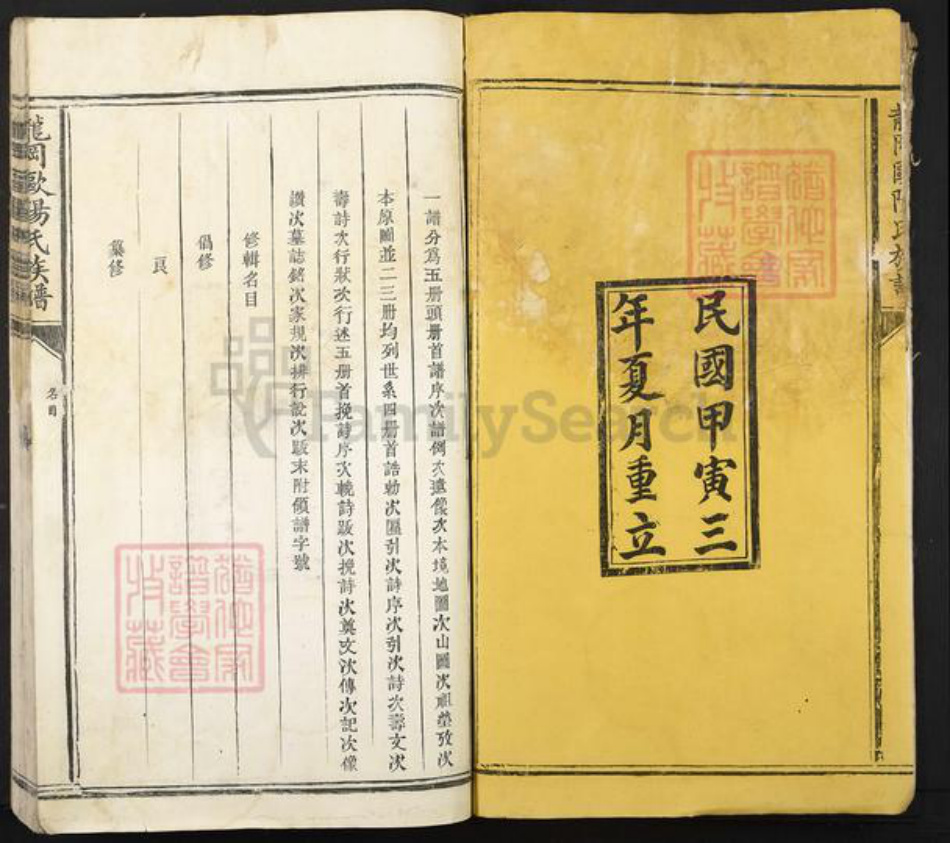 民國甲寅三
年夏月重立
一譜分爲五册頭册首譜序次譜例次遺像次本境地圖次山圖次祖塋攷次
本原圖並二三册均列世系四册首誥勅次匾引次詩序次引次詩次壽文次
壽詩次行狀次行述五册首挽詩序次輓詩跋次挽詩次奠文次傳次記次像
讚次墓誌銘次家規次排行說次跋末附領譜字號
修輯名目
倡修
纂修
龍岡歐陽氏族譜
名目
FamilySearch